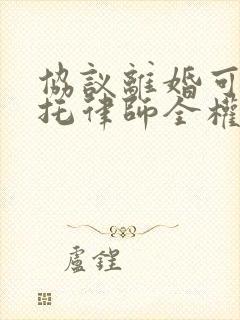 協議離婚可
托律師全權
盧鋥